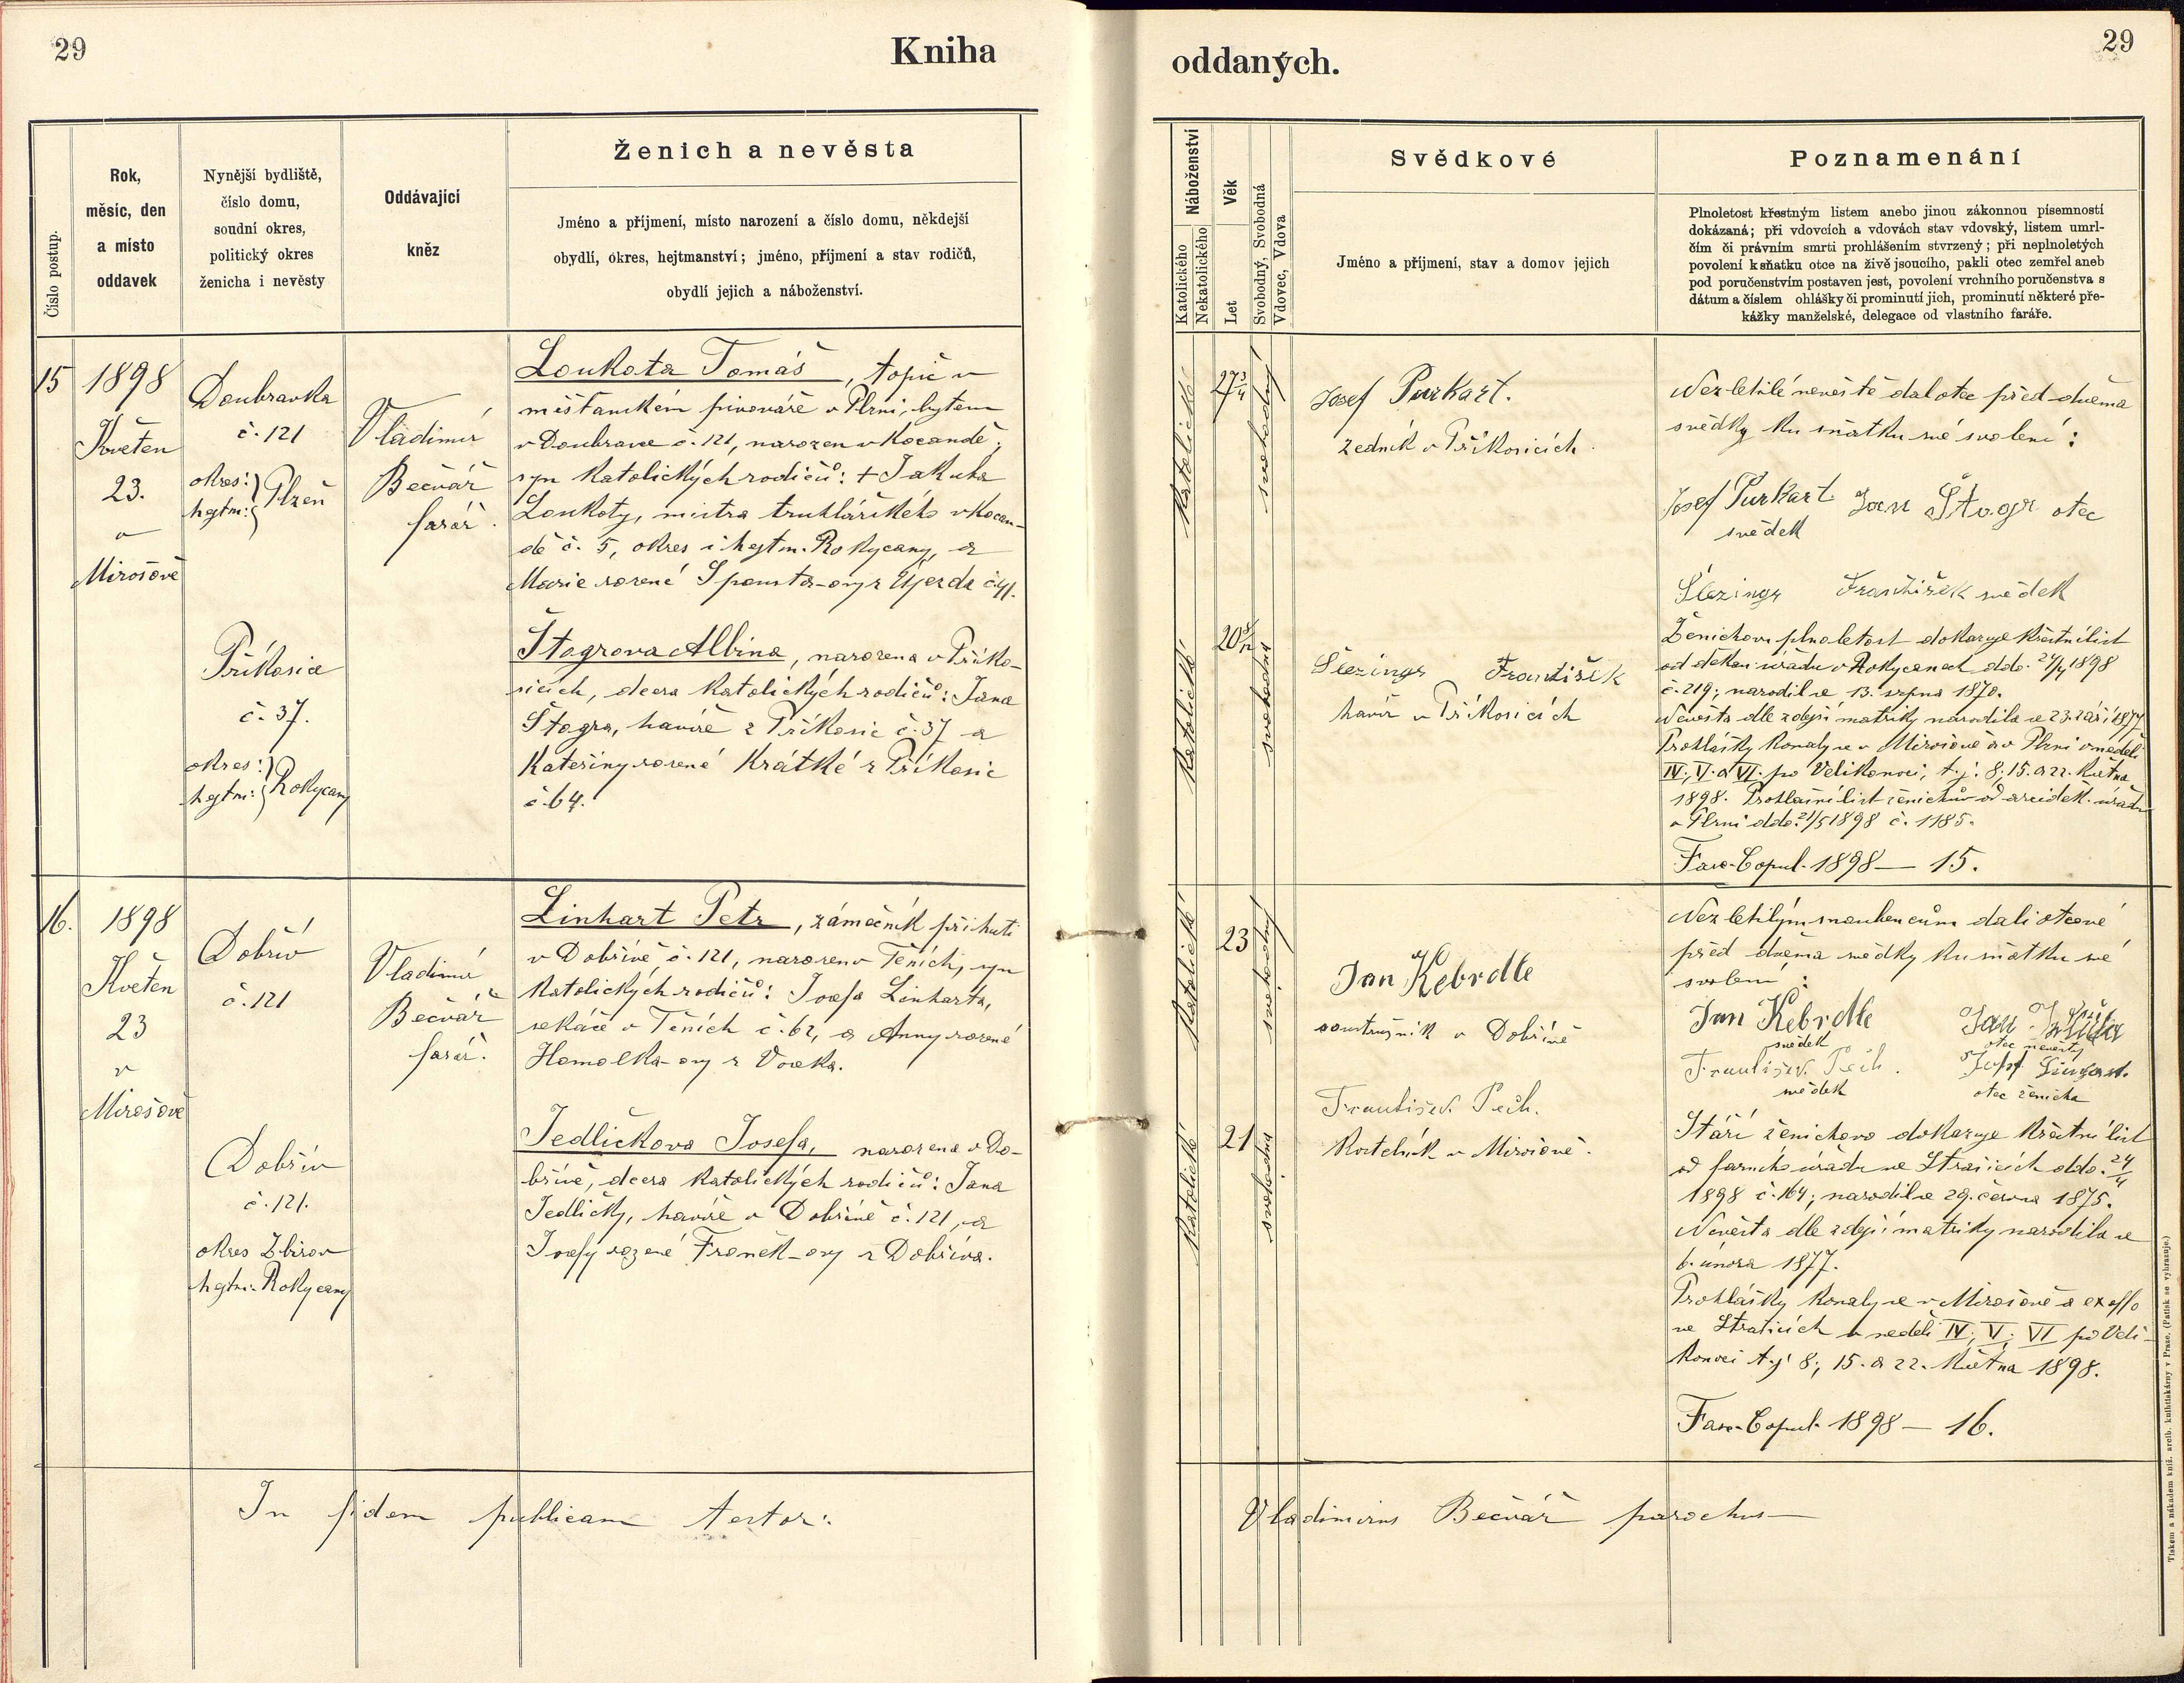 29
Kniha
Číslo postup.
Rok,
měsíc, den
a místo
oddavek
Nynější bydliště,
číslo domu,
soudní okres,
politický okres
ženicha i nevěsty
Oddávající
kněz
Ženich a nevěsta
Jméno a příjmení, místo narození a číslo domu, někdejší
obydlí, okres, hejtmanství; jméno, příjmení a stav rodičů,
obydlí jejich a náboženství.
15
1898
Květen
23.
v
Mirošově
Doubravka
č. 121
okres:
hejtm: Plzeň
Vladimír
Bečvář
farář.
Loukota Tomáš, topič v
měšťanském pivováře v Plzni, bytem
v Doubravce č. 121, narozen v Kocandě,
syn katolických rodičů: + Jakuba
Loukoty, mistra truhlářského v Kocan-
dě č. 5, okres i hejtm. Rokycany, a
Marie rozené Spousta-ovy z Újezda č. 41.
Příkosice
č. 37.
okres:
hejtm: Rokycany
Štogrova Albina, narozena v Příko-
sicích, dcera katolických rodičů: Jana
Štogra, havíře z Příkosic č. 37 a
Kateřiny rozené Krátké z Příkosic
č. 64.
16.
1898
Květen
23
v
Mirošově
Dobřív
č. 121
Vladimír
Bečvář
farář.
Linhart Petr, zámečník při huti
v Dobřívě č. 121, narozen v Těních, syn
katolických rodičů: Josefa Linharta,
sekáče v Těních č. 62, a Anny rozené
Homolka-ovy z Voseka.
Dobřív
č. 121.
okres Zbirov
hejtm. Rokycany
Jedličkova Josefa, narozena v Do-
břívě, dcera katolických rodičů: Jana
Jedličky, havíře v Dobřívě č. 121, a
Josefy rozené Franěk-ovy z Dobříva.
In fidem publicam testor:
29
oddaných.
Náboženství
Katolického
Nekatolického
Věk
Let
Svobodný, Svobodná
Vdovec, Vdova
Svědkové
Jméno a příjmení, stav a domov jejich
Poznamenání
Plnoletost křestným listem anebo jinou zákonnou písemností
dokázaná; při vdovcích a vdovách stav vdovský, listem umrl-
čím či právním smrti prohlášením stvrzený; při neplnoletých
povolení k sňatku otce na živě jsoucího, pakli otec zemřel aneb
pod poručenstvím postaven jest, povolení vrchního poručenstva s
dátum a číslem ohlášky či prominutí jich, prominutí některé pře-
kážky manželské, delegace od vlastního faráře.
katolické
27 3/4
svobodný
Josef Purkart.
zedník v Příkosicích.
Nezletilé nevěstě dal otec před dvěma
svědky ku sňatku své svolení:
Josef Purkart Jan Štogr otec
svědek
Šlezingr František svědek
katolické
20 8/12
svobodná
Šlezingr František
havíř v Příkosicích
Ženichovu plnoletost dokazuje křestní list
od děkan. úřadu v Rokycanech ddo. 24/4 1898
č. 219; narodil se 13. srpna 1870.
Nevěsta dle zdejší matriky narodila se 23. září 1877
Prohlášky konaly se v Mirošově a v Plzni v neděli
IV., V. a VI. po Velikonoci, t. j. 8., 15. a 22. května
1898. Prohlašní list ženichův od arciděk. úřadu
v Plzni ddo. 21/5 1898 č. 1185.
Fasc. Copul. 1898 — 15.
katolické
23
svobodný
Jan Kebrdle
soustružník v Dobřívě
Nezletilým snoubencům dali otcové
před dvěma svědky ku sňatku své
svolení:
Jan Kebrdle
svědek
otec nevěsty
František Pech.
svědek
otec ženicha
katolické
21
svobodná
František Pech.
Kostelník v Mirošově.
Stáří ženichovo dokazuje křestní list
od farního úřadu ve Strašicích ddo. 24/4
1898 č. 164; narodil se 29. června 1875.
Nevěsta dle zdejší matriky narodila se
6. února 1877.
Prohlášky konaly se v Mirošově a ex offo
ve Strašicích v neděli IV., V., VI po Veli-
konoci t. j. 8., 15. a 22. května 1898.
Fasc. Copul. 1898 — 16.
Vladimirus Bečvář parochus
Tiskem a nákladem kníž. arcib. knihtiskárny v Praze. (Patisk se vyhrazuje.)